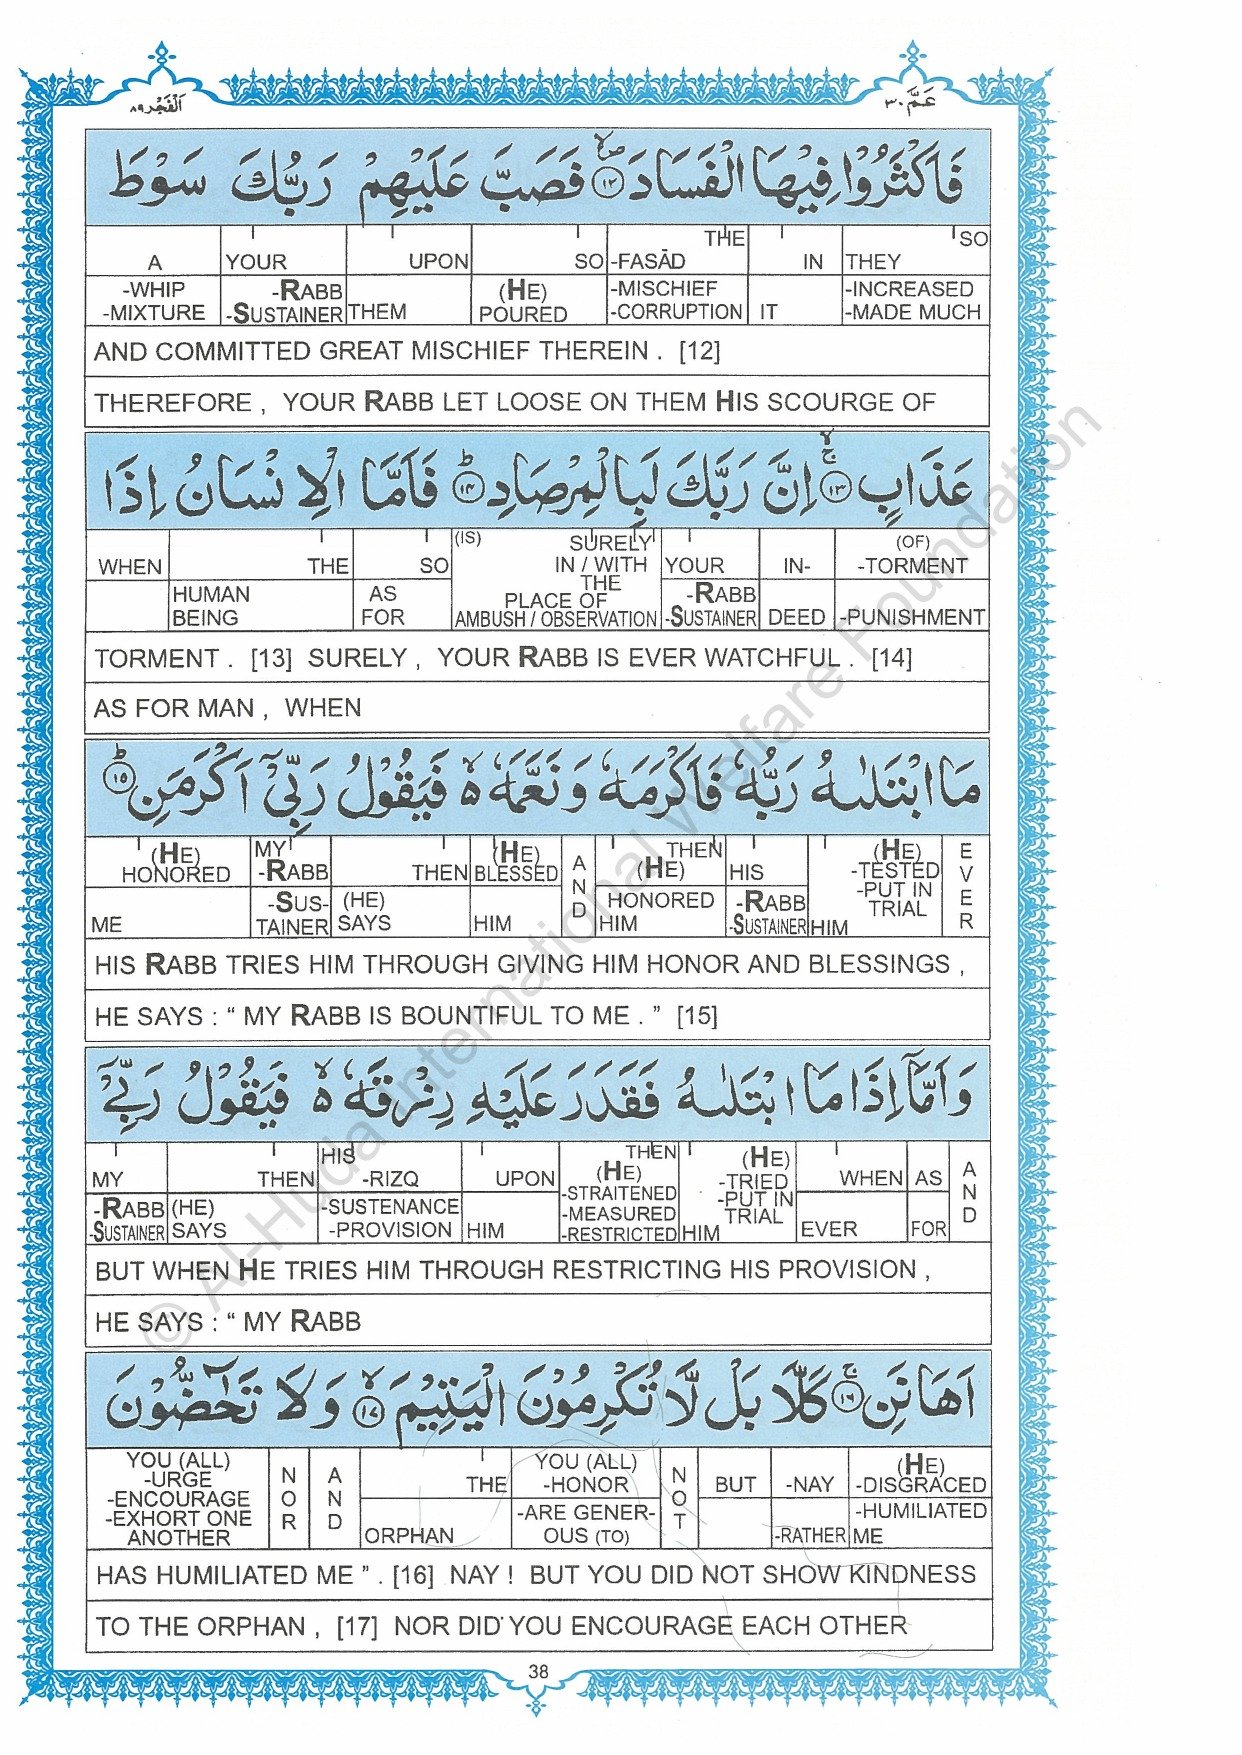 عَمَّ ٣٠
اَلْفَجْر ٨٩
فَاَكْثَرُوْا فِيْهَا الْفَسَادَ ۙ۝١٢ فَصَبَّ عَلَيْهِمْ رَبُّكَ سَوْطَ
A YOUR UPON SO THE -FASĀD IN SO THEY
-WHIP -MIXTURE -RABB -SUSTAINER THEM (HE) POURED -MISCHIEF -CORRUPTION IT -INCREASED -MADE MUCH
AND COMMITTED GREAT MISCHIEF THEREIN . [12]
THEREFORE , YOUR RABB LET LOOSE ON THEM HIS SCOURGE OF
عَذَابٍ ۚۙ۝١٣ اِنَّ رَبَّكَ لَبِالْمِرْصَادِ ؕ۝١٤ فَاَمَّا الْاِنْسَانُ اِذَا
WHEN THE SO (IS) SURELY IN / WITH THE PLACE OF AMBUSH / OBSERVATION YOUR IN- (OF) -TORMENT
HUMAN BEING AS FOR -RABB -SUSTAINER DEED -PUNISHMENT
TORMENT . [13] SURELY , YOUR RABB IS EVER WATCHFUL . [14]
AS FOR MAN , WHEN
مَا ابْتَلٰىهُ رَبُّهٗ فَاَكْرَمَهٗ وَنَعَّمَهٗ ۙ فَيَقُوْلُ رَبِّيْۤ اَكْرَمَنِ ؕ۝١٥
(HE) HONORED MY -RABB THEN (HE) BLESSED AND THEN (HE) HIS (HE) -TESTED -PUT IN TRIAL EVER
ME -SUS- TAINER (HE) SAYS HIM HONORED HIM -RABB -SUSTAINER HIM
HIS RABB TRIES HIM THROUGH GIVING HIM HONOR AND BLESSINGS ,
HE SAYS : “ MY RABB IS BOUNTIFUL TO ME . ” [15]
وَاَمَّاۤ اِذَا مَا ابْتَلٰىهُ فَقَدَرَ عَلَيْهِ رِزْقَهٗ ۙ فَيَقُوْلُ رَبِّيْۤ
MY THEN HIS -RIZQ UPON THEN (HE) -STRAITENED -MEASURED -RESTRICTED (HE) -TRIED -PUT IN TRIAL WHEN AS AND
-RABB -SUSTAINER (HE) SAYS -SUSTENANCE -PROVISION HIM HIM EVER FOR
BUT WHEN HE TRIES HIM THROUGH RESTRICTING HIS PROVISION ,
HE SAYS : “ MY RABB
اَهَانَنِ ۚ۝١٦ كَلَّا بَلْ لَّا تُكْرِمُوْنَ الْيَتِيْمَ ۙ۝١٧ وَلَا تَحٰٓضُّوْنَ
YOU (ALL) -URGE -ENCOURAGE -EXHORT ONE ANOTHER NOR AND THE YOU (ALL) -HONOR NOT BUT -NAY (HE) -DISGRACED
ORPHAN -ARE GENER- OUS (TO) -RATHER -HUMILIATED ME
HAS HUMILIATED ME ” . [16] NAY ! BUT YOU DID NOT SHOW KINDNESS
TO THE ORPHAN , [17] NOR DID YOU ENCOURAGE EACH OTHER
38
© Al-Huda International Welfare Foundation